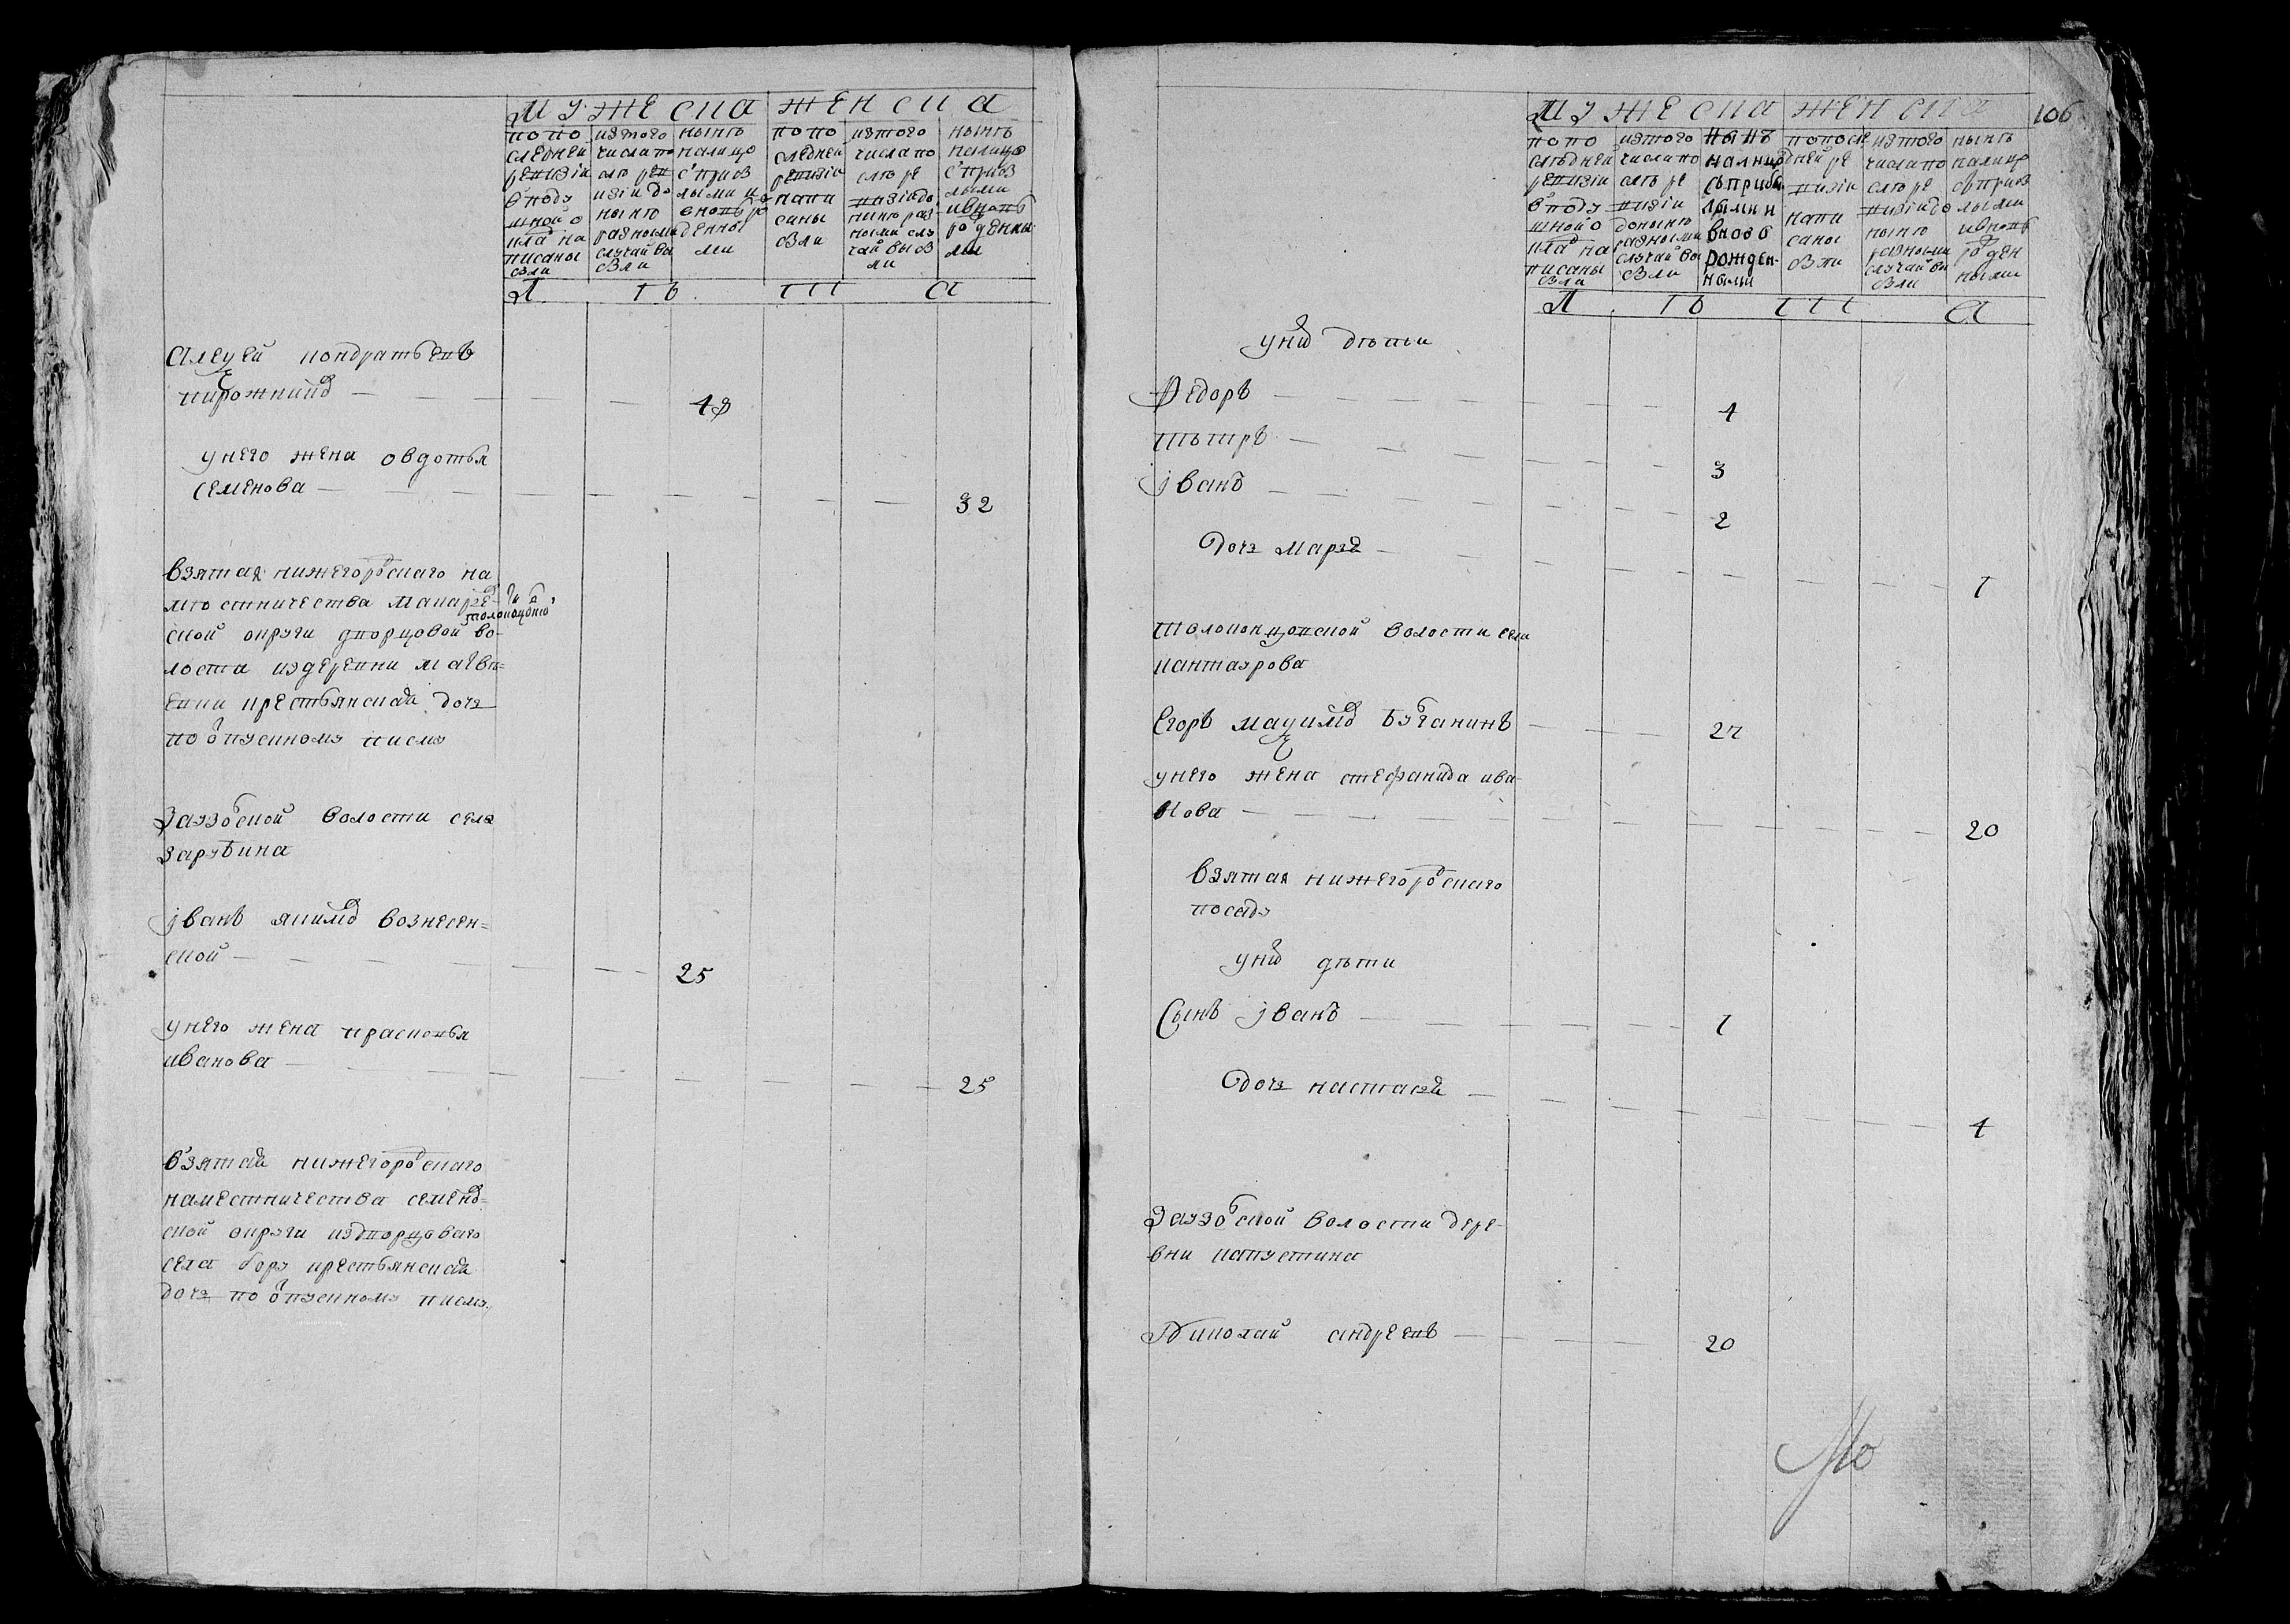 мужеска женска
по по
следней
ревизiи
в поду
шной о
клад на
писаны
были
из того
числа по
слѣ рев
изiи до
нынѣ
разными
случай вы
были
нынѣ
на лицо
с прибы
лыми и
вновь ро
жденны
ми
по по
следней
ревизiи
напи
саны
были
из того
числа по
слѣ ре
визiи до
нынѣ раз
ными слу
чай выбы
ли
нынѣ
на лицо
с прибы
лыми
и вновь
рожденны
ми
л ѣ т а
Алеѯей кондратьевъ
пирожник
48
у него жена овдотья
семенова
32
взятая нижегородскаго на
мѣстничества макарьев
ской округи дворцовой во-
лости из деревни
крестьянская дочь
по отпускному писму
заузолской волости села
зарубина
jванъ якимов вознесен=
ской
25
у него жена прасковья
иванова
25
взятая нижегородскаго
наместничества семенов=
ской округи из дворцоваго
села бору крестьянская
дочь по отпускному писму
106
мужеска женска
по по
слѣдней
ревизiи
в поду
шной о
клад на
писаны
были
из того
числа по
слѣ ре
визiи
до нынѣ
разными
случай вы
были
нынѣ
на лицо
съ прибы
лыми и
вновь
рожден-
ными
по посл
дней ре
визiи
напи
саны
были
из того
числа по
слѣ ре
визiи до
нынѣ
разными
случай вы
были
нынѣ
на лицо
с прибы
лыми
и вновь
рожден
ными
л ѣ т а
у них дѣтьи
Ѳедоръ
4
петръ
3
jванъ
2
дочь марья
1
толоконцовской волости села
кантаурова
Егоръ маѯимов Бубанинъ
27
у него жена стефанида ива-
нова
20
взятая нижегородскаго
посаду
у них дѣти
Сынъ jванъ
1
дочь настасья
4
Заузолской волости дере-
вни капустина
Николай андреевъ
20